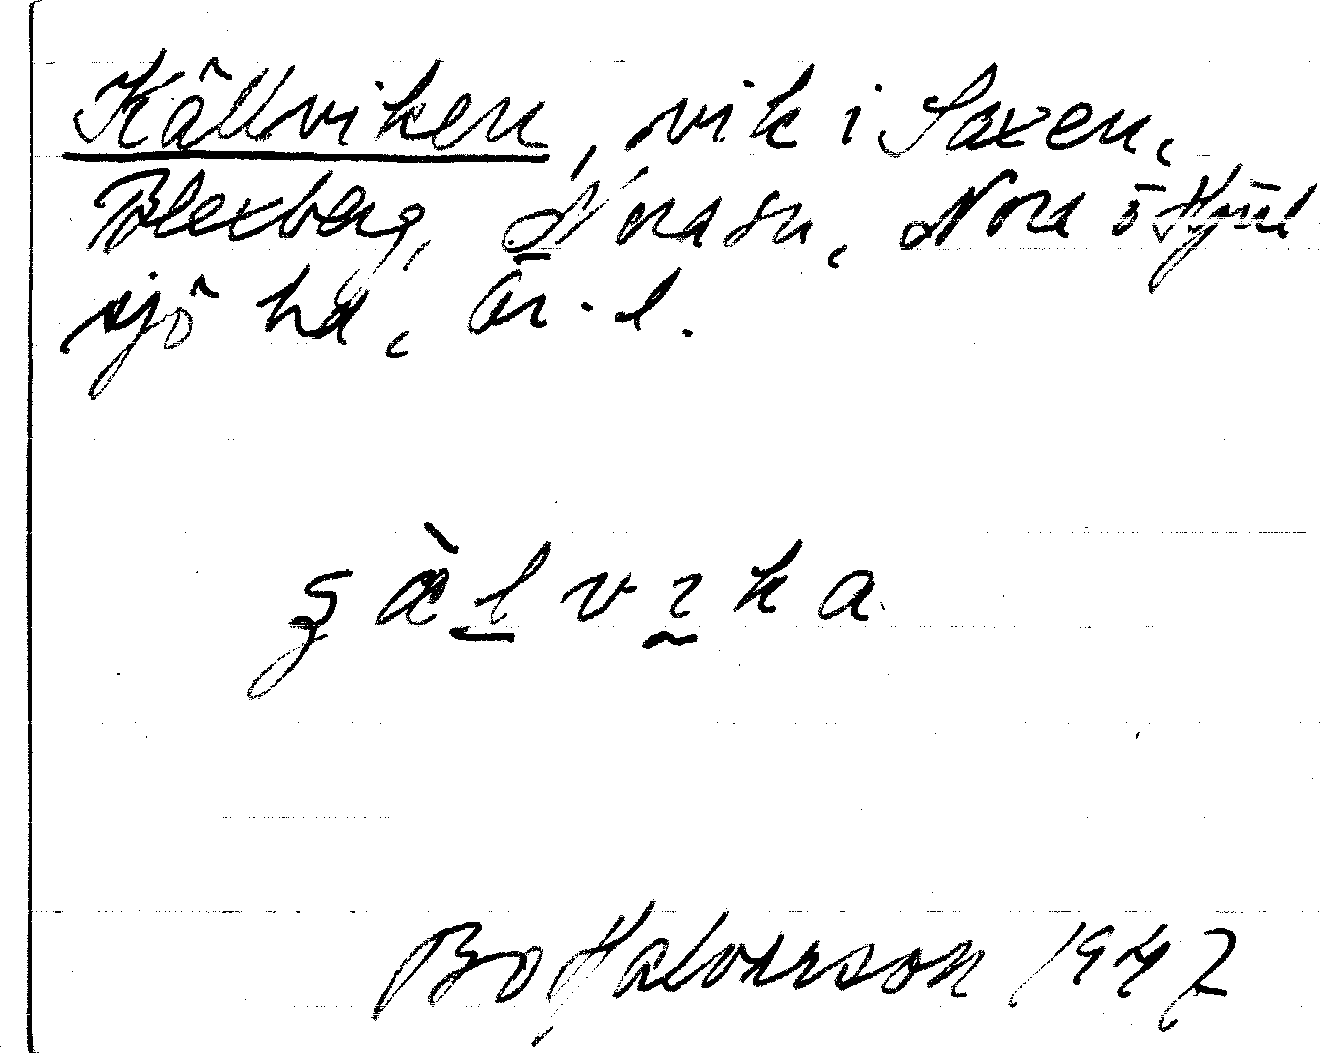 Källviken, vik i Saxen,
Blexberg, Nora sn, Nora o Hjul
sjö hd, Ör. l.
ʂæ̀lvɪka
Bo Halvarsson 1947